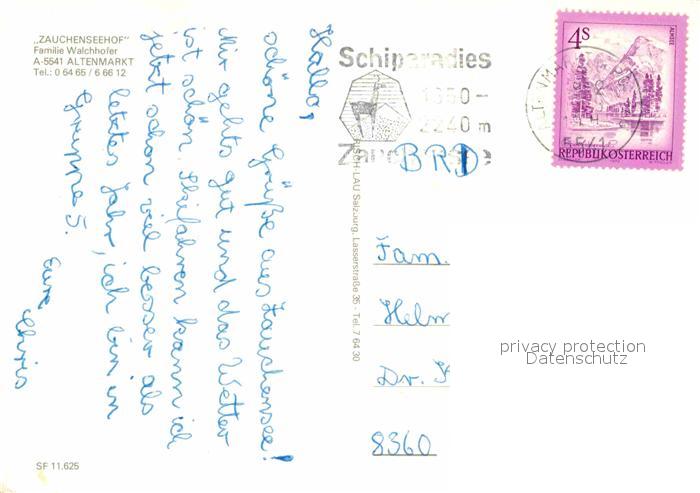 „ZAUCHENSEEHOF"
Familie Walchhofer
A-5541 ALTENMARKT
Tel.: 0 64 65 / 6 66 12
Hallo,
schöne Grüße aus Zauchensee!
Mir gehts gut und das Wetter
ist schön. Skifahren kann ich
jetzt schon viel besser als
letztes Jahr, ich bin in
Gruppe 5.
Eure
SF 11.625
RISCH-LAU Salzburg, Lasserstraße 35 - Tel. 7 64 30
Schiparadies
1350 –
2240 m
BRD
4S
ALMSEE
REPUBLIK ÖSTERREICH
Fam.
Helm
Dr.
8360
privacy protection
Datenschutz